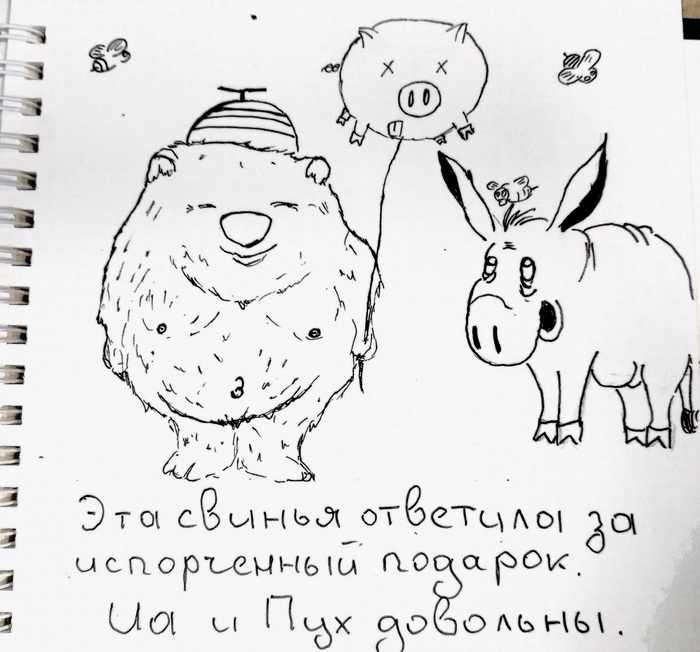 Эта свинья ответила за
испорченный подарок.
Иа и Пух довольны.